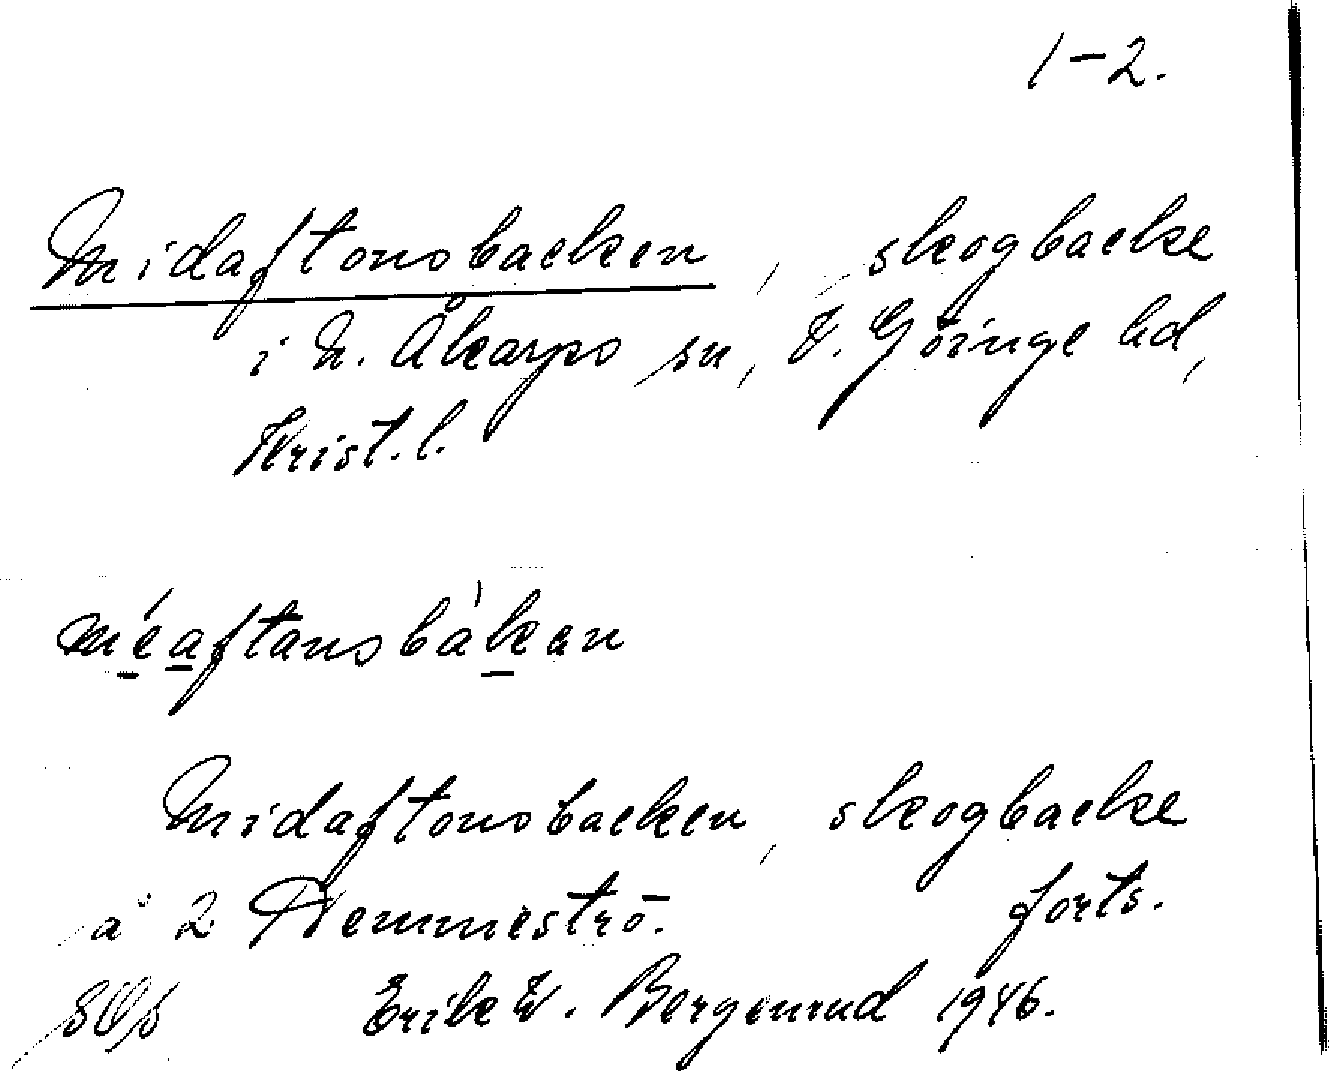 1-2.
Midaftonsbacken, skogbacke
i N. Åkarps sn, V. Göinge hd,
Krist. l.
méaftansbàkan
Midaftonsbacken, skogbacke
å 2 Hemmeströ. forts.
SOS Erik W. Bergenrud 1946.